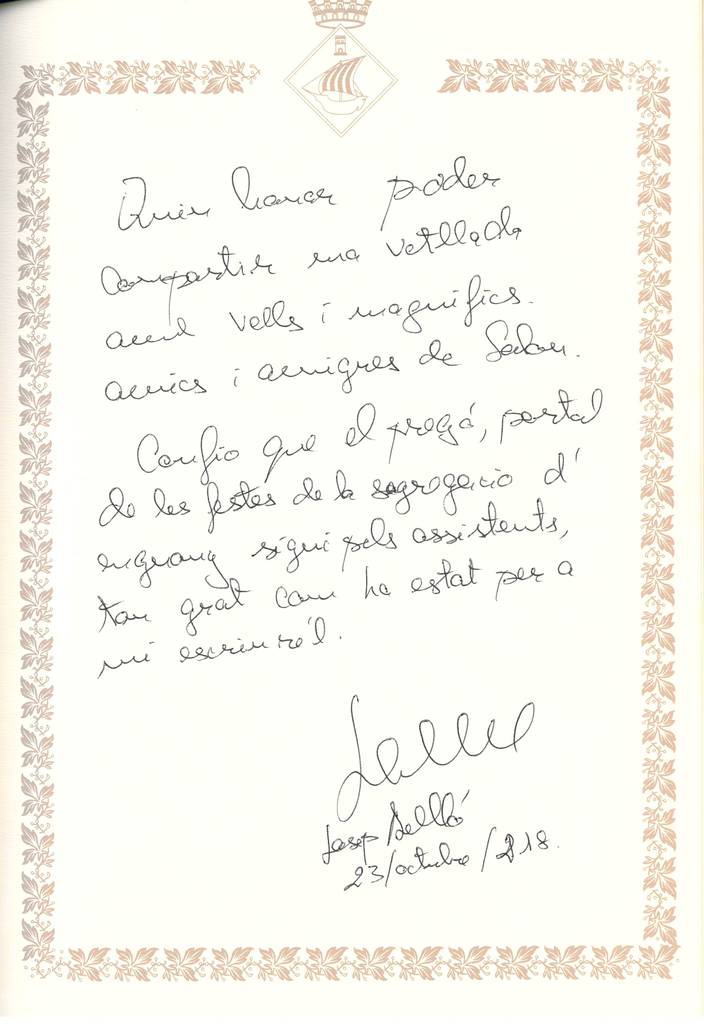 Quin honor poder
compartir una vetllada
amb vells i magnífics.
amics i amigues de
Confio que el pregó, portal
de les festes de la
enguany sigui pels assistents,
tan grat com ha estat per a
mi escriure'l.
Josep
23/octubre/218.